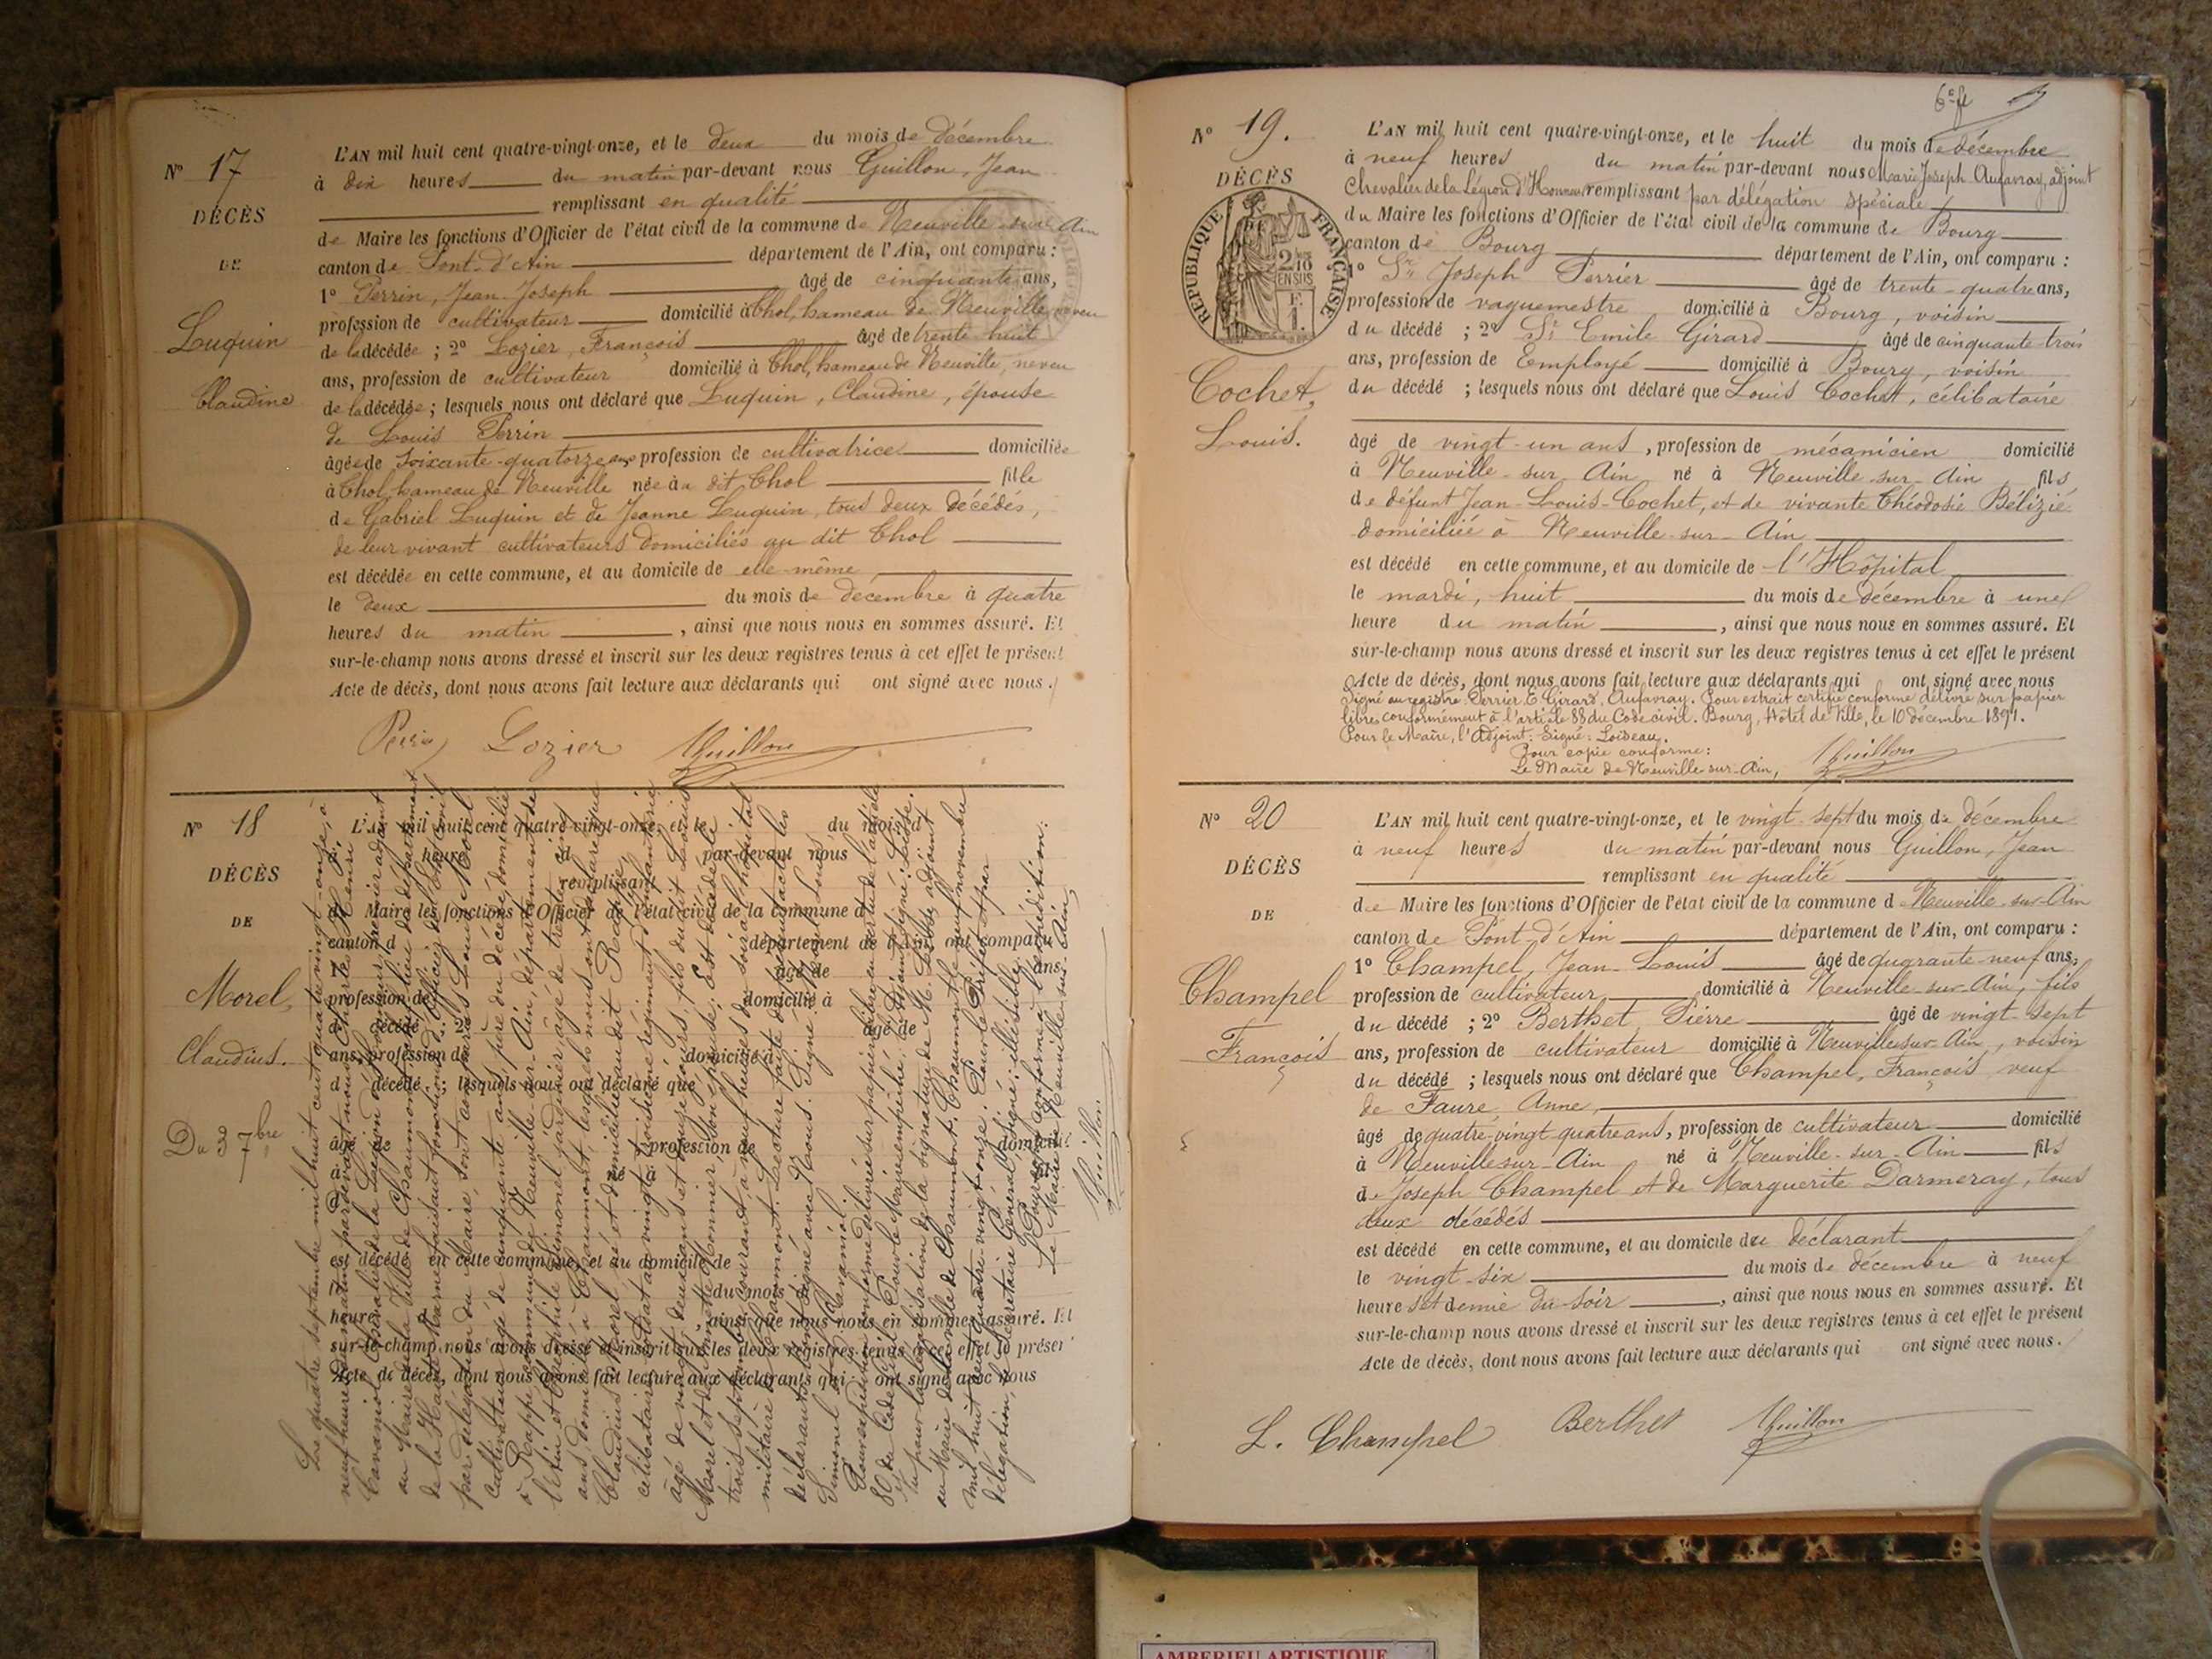 N° 17
DÉCÈS
DE
Luquin
Claudine
L'AN mil huit cent quatre-vingt-onze, et le deux du mois de décembre
à dix heures du matin par-devant nous Guillon, Jean
remplissant en qualité
de Maire les fonctions d'Officier de l'état civil de la commune de Neuville-sur-Ain
canton de Pont-d'Ain département de l'Ain, ont comparu :
1° Perrin, Jean-Joseph âgé de cinquante ans,
profession de cultivateur domicilié à Thol, hameau de Neuville, neveu
de la décédée ; 2° Lozier, François âgé de trente huit
ans, profession de cultivateur domicilié à Thol, hameau de Neuville, neveu
de la décédée ; lesquels nous ont déclaré que Luquin, Claudine, épouse
de Louis Perrin
âgée de soixante-quatorze ans profession de cultivatrice domiciliée
à Thol, hameau de Neuville née au dit Thol fille
de Gabriel Luquin et de Jeanne Luquin, tous deux décédés,
de leur vivant cultivateurs domiciliés au dit Thol
est décédée en cette commune, et au domicile de elle-même
le deux du mois de décembre à quatre
heures du matin , ainsi que nous nous en sommes assuré. Et
sur-le-champ nous avons dressé et inscrit sur les deux registres tenus à cet effet le présent
Acte de décès, dont nous avons fait lecture aux déclarants qui ont signé avec nous.
Perrin Lozier JGuillon
N° 18
DÉCÈS
DE
Morel,
Claudius.
Du 3 7bre
L'AN mil huit cent quatre-vingt-onze, et le du mois d
heure d par-devant nous
remplissant
d Maire les fonctions d'Officier de l'état civil de la commune d
canton d département de l'Ain, ont comparu
1° âgé de ans,
profession de domicilié à
d décédé ; 2° âgé de
ans, profession de domicilié à
d décédé ; lesquels nous ont déclaré que
âgé de profession de domicilié
à né à
d
est décédé en cette commune, et au domicile de
le du mois d
heure d , ainsi que nous nous en sommes assuré. Et
sur-le-champ nous avons dressé et inscrit sur les deux registres tenus à cet effet le présent
Acte de décès, dont nous avons fait lecture aux déclarants qui ont signé avec nous
Le quatre septembre mil huit cent quatre vingt onze, à
neuf heures du matin, par devant nous Charles Henri
au Maire de la Ville de Chaumont, chef-lieu du département
de la Haute Marne, faisant fonctions d'Officier de l'état civil
par délégation du Maire, sont comparus Louis Morel
cultivateur, âgé de cinquante ans, père du décédé, domicilié
commune de Neuville-sur-Ain, département de
ans, domicilié à Chaumont, lesquels nous ont déclaré que
Claudius Morel né et domicilié au dit
célibataire, soldat au vingt troisième régiment d'infanterie
âgé de vingt deux ans et jours, fils du dit Louis
Morel et de son épouse, Est décédé le
trois septembre courant, à neuf heures du soir à l'hôpital
militaire de Chaumont. Lecture faite du présent acte les
déclarants ont signé avec Nous. Signé : Morel Louis,
Simonel
Pour expédition conforme délivrée sur papier libre en vertu de l'article
80 du Code Civil. Pour le Maire empêché, l'Adjoint signé :
Vu pour la légalisation de la signature de M. adjoint
au Maire de la ville de Chaumont. Chaumont le neuf novembre
mil huit cent quatre vingt onze. Pour le Préfet et par
délégation, le Secrétaire Général signé : illisible.
Pour copie conforme à l'expédition :
Le Maire de Neuville-sur-Ain,
JGuillon
6e ft
N° 19.
DÉCÈS
RÉPUBLIQUE FRANÇAISE
2/10
EN SUS
Cochet,
Louis.
L'AN mil huit cent quatre-vingt-onze, et le huit du mois de décembre
à neuf heures du matin par-devant nous Marie Joseph Aufavray, adjoint
Chevalier de la Légion d'Honneur, remplissant par délégation spéciale
du Maire les fonctions d'Officier de l'état civil de la commune de Bourg
canton de Bourg département de l'Ain, ont comparu :
1° Sr Joseph Perrier âgé de trente-quatre ans,
profession de vaguemestre domicilié à Bourg, voisin
du décédé ; 2° Sr Emile Girard âgé de cinquante-trois
ans, profession de Employé domicilié à Bourg, voisin
du décédé ; lesquels nous ont déclaré que Louis Cochet, célibataire
âgé de vingt-un ans, profession de mécanicien domicilié
à Neuville-sur-Ain né à Neuville-sur-Ain fils
de défunt Jean-Louis-Cochet, et de vivante Théodosie Bélizié
domiciliée à Neuville-sur-Ain
est décédé en cette commune, et au domicile de l'Hôpital
le mardi, huit du mois de décembre à une
heure du matin , ainsi que nous nous en sommes assuré. Et
sur-le-champ nous avons dressé et inscrit sur les deux registres tenus à cet effet le présent
Acte de décès, dont nous avons fait lecture aux déclarants qui ont signé avec nous
Signé au registre : Perrier, E. Girard, Aufavray. Pour extrait certifié conforme délivré sur papier
libre, conformément à l'article 80 du Code civil. Bourg, Hôtel de Ville, le 10 décembre 1891.
Pour le Maire, l'Adjoint : Signé : Loiseau.
Pour copie conforme :
Le Maire de Neuville-sur-Ain, JGuillon
N° 20
DÉCÈS
DE
Champel
François
L'AN mil huit cent quatre-vingt-onze, et le vingt-sept du mois de décembre
à neuf heures du matin par-devant nous Guillon, Jean
remplissant en qualité
de Maire les fonctions d'Officier de l'état civil de la commune de Neuville-sur-Ain
canton de Pont-d'Ain département de l'Ain, ont comparu :
1° Champel, Jean-Louis âgé de quarante-neuf ans,
profession de cultivateur domicilié à Neuville-sur-Ain, fils
du décédé ; 2° Berthet, Pierre âgé de vingt-sept
ans, profession de cultivateur domicilié à Neuville-sur-Ain, voisin
du décédé ; lesquels nous ont déclaré que Champel, François, veuf
de Faure, Anne,
âgé de quatre-vingt-quatre ans, profession de cultivateur domicilié
à Neuville-sur-Ain né à Neuville-sur-Ain fils
de Joseph Champel et de Marguerite Darmeray, tous
deux décédés
est décédé en cette commune, et au domicile du déclarant
le vingt-six du mois de décembre à neuf
heures et demie du soir , ainsi que nous nous en sommes assuré. Et
sur-le-champ nous avons dressé et inscrit sur les deux registres tenus à cet effet le présent
Acte de décès, dont nous avons fait lecture aux déclarants qui ont signé avec nous.
L. Champel Berthet JGuillon
AMBERIEU ARTISTIQUE